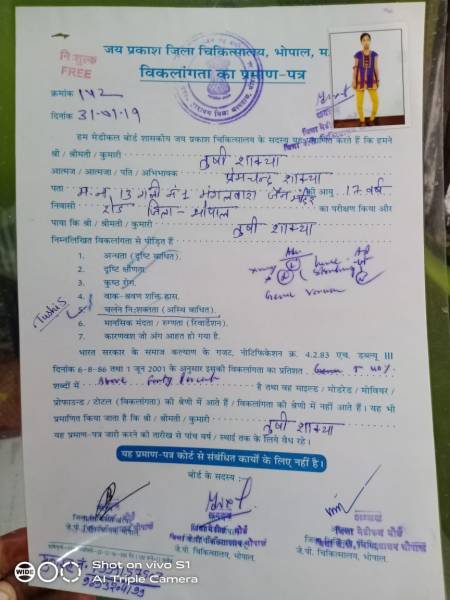 जय प्रकाश जिला चिकित्सालय, भोपाल, म.
नि:शुल्क
FREE
विकलांगता का प्रमाण-पत्र
क्रमांक 142
दिनांक 31-01-19
हम मेडीकल बोर्ड शासकीय जय प्रकाश चिकित्सालय के सदस्य यह प्रमाणित करते हैं कि हमने
श्री / श्रीमती / कुमारी तुषी शाक्या
आत्मज / आत्मजा / पति / अभिभावक प्रेमचन्द शाक्या
पता म.न. 13 गली नं. 1 मंगलवारा जैन मंदिर की आयु 17 वर्ष
निवासी रोड जिला - भोपाल का परीक्षण किया और
पाया कि श्री / श्रीमती / कुमारी तुषी शाक्या
निम्नलिखित विकलांगता से पीड़ित हैं
1. अन्धता (दृष्टि बाधित).
2. दृष्टि क्षीणता.
3. कुष्ठ रोग.
4. वाक-श्रवण शक्ति ह्रास.
5. चलन नि:शक्तता (अस्थि बाधित).
6. मानसिक मंदता / रुग्णता (रिटार्डेशन).
7. कारणवश जो अंग आहत हो गया है.
Tushi S
Genu Varum
भारत सरकार के समाज कल्याण के गजट, नोटिफिकेशन क्र. 4.2.83 एच. डब्ल्यू III
दिनांक 6-8-86 तथा 1 जून 2001 के अनुसार इसकी विकलांगता का प्रतिशत 40%
शब्दों में Above Forty Percent है तथा वह माइल्ड / मोडरेट / सीवियर /
प्रोफाउन्ड / टोटल (विकलांगता) की श्रेणी में आते हैं / विकलांगता की श्रेणी में नहीं आते हैं। यह भी
प्रमाणित किया जाता है कि श्री / श्रीमती / कुमारी तुषी शाक्या
यह प्रमाण-पत्र जारी करने की तारीख से पांच वर्ष / स्थाई तक के लिये वैध रहे.
यह प्रमाण-पत्र कोर्ट से संबंधित कार्यो के लिए नहीं है।
बोर्ड के सदस्य
जे.पी. चिकित्सालय, भोपाल.
जे.पी. चिकित्सालय, भोपाल.
Shot on vivo S1
AI Triple Camera